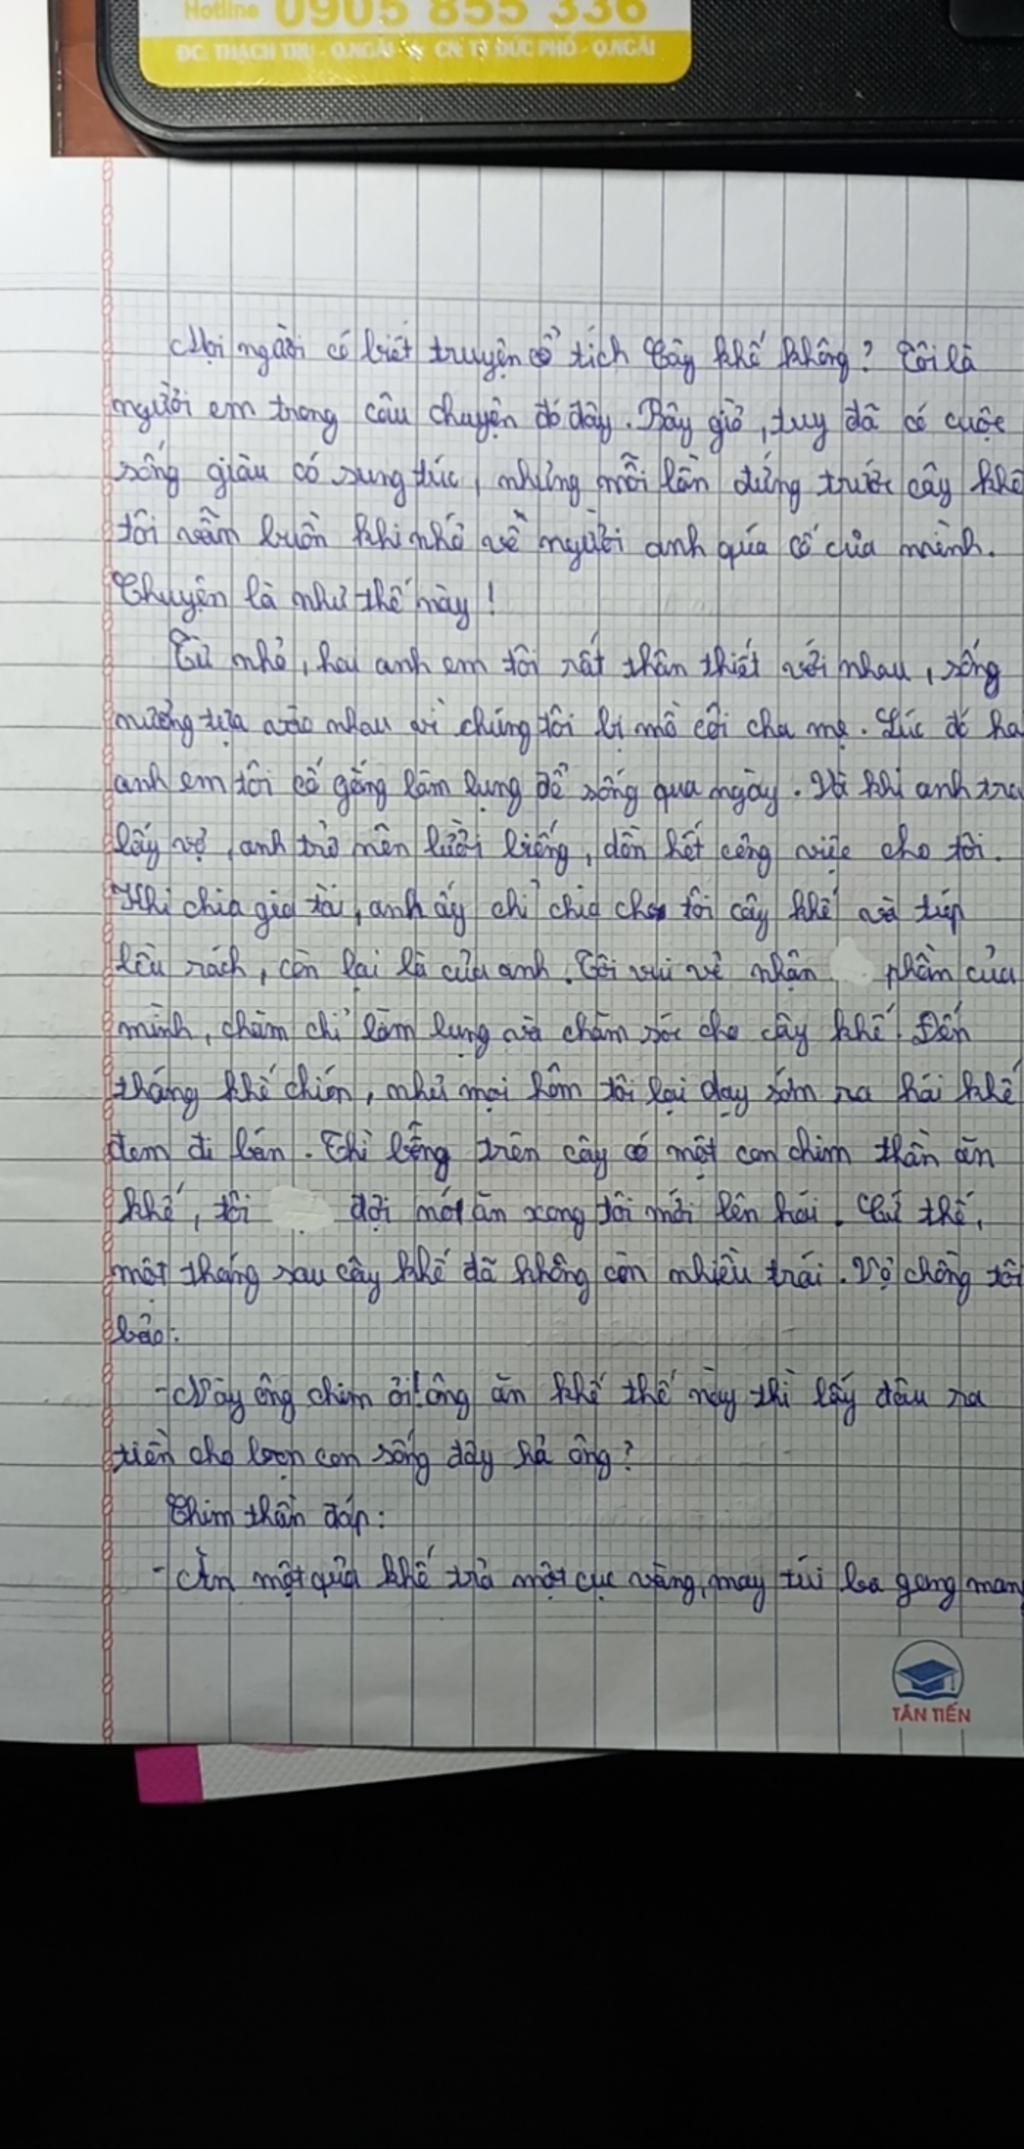 Hotline 0905 855 336
ĐC: THẠCH TRỤ - Q.NGÃI CN: TP ĐỨC PHỔ - Q.NGÃI
Mọi người có biết truyện cổ tích Cây khế không? Tôi là
người em trong câu chuyện đó đây. Bây giờ, tuy đã có cuộc
sống giàu có sung túc, nhưng mỗi lần đứng trước cây khế
tôi vẫn buồn khi nhớ về người anh quá cố của mình.
Chuyện là như thế này!
Từ nhỏ, hai anh em tôi rất thân thiết với nhau, sống
nương tựa vào nhau vì chúng tôi bị mồ côi cha mẹ. Lúc đó ha
anh em tôi cố gắng làm lụng để sống qua ngày. Và khi anh tra
lấy vợ, anh trở nên lười biếng, dồn hết công việc cho tôi.
Khi chia gia tài, anh ấy chỉ chia cho tôi cây khế và túp
lều rách, còn lại là của anh. Tôi vui vẻ nhận phần của
mình, chăm chỉ làm lụng và chăm sóc cho cây khế. Đến
tháng khế chién, như mọi hôm tôi lại dạy sớm ra hái khế
đem đi bán. Thì bỗng trên cây có một con chim thần ăn
khế, tôi đợi nót ăn xong tôi mới lên hái. Cứ thế,
một tháng sau cây khế đã không còn nhiều trái. Vợ chồng tôi
bảo:
- Này ông chim ơi! ông ăn khế thế này thì lấy đâu ra
tiền cho bọn con sống đây hả ông?
Chim thần đáp:
- Ăn một quả khế trả một cục vàng, may túi ba gang man
TÂN TIẾN